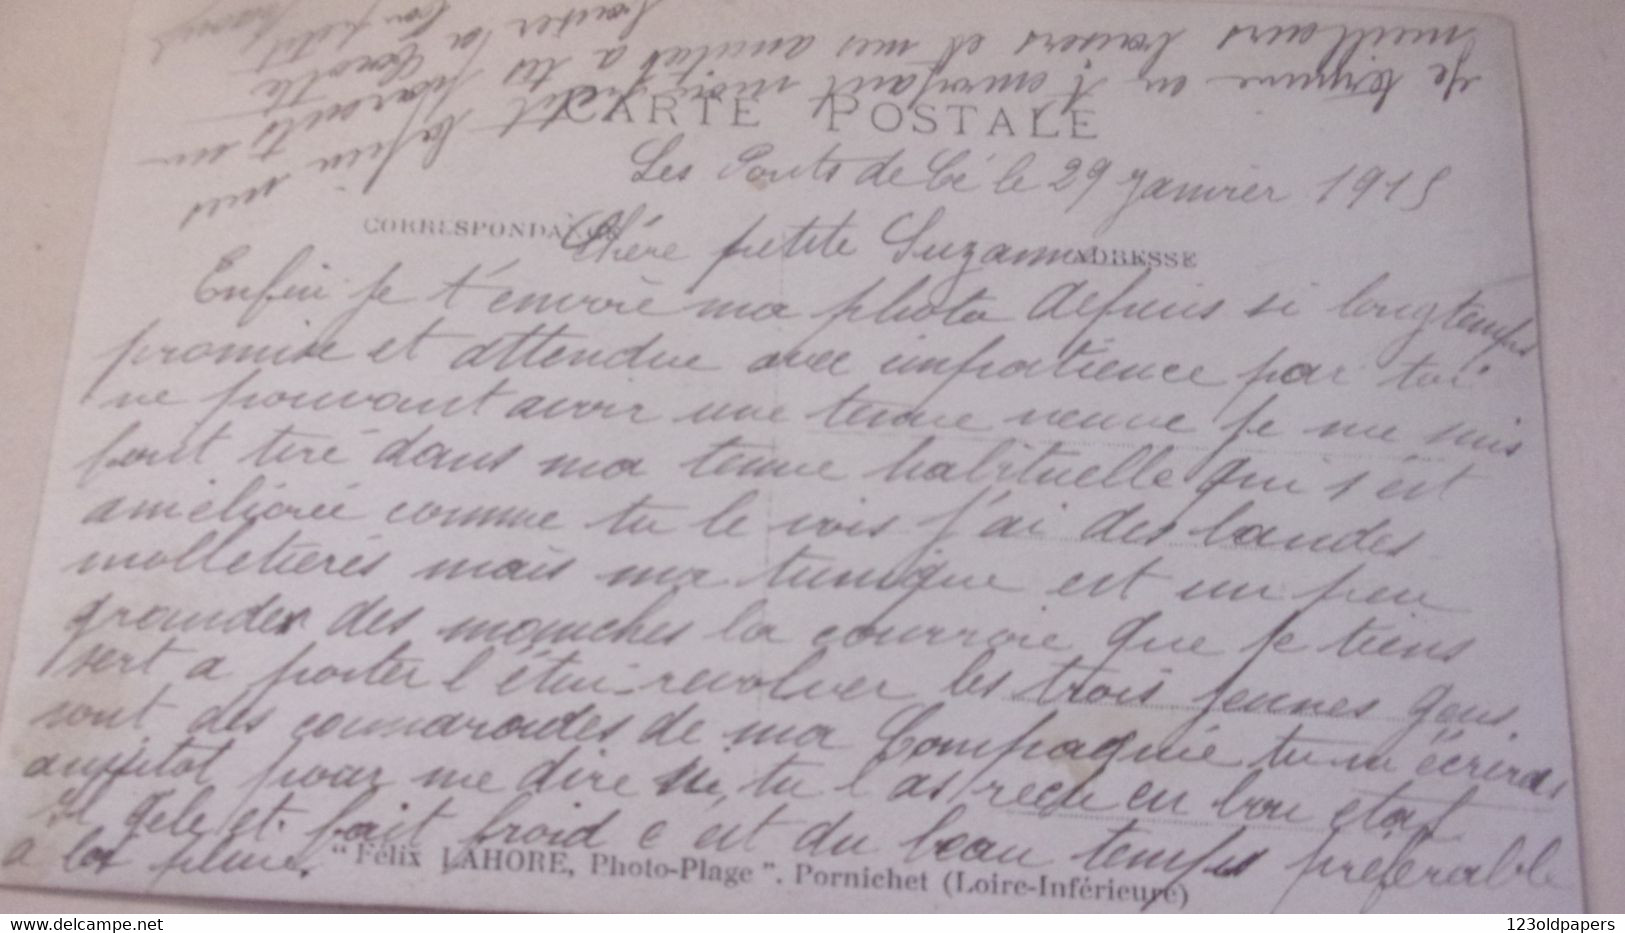 CARTE POSTALE
Les Ponts de Cé le 29 Janvier 1915
CORRESPONDANCE
ADRESSE
Chère petite Suzanne
Enfin je t'envoie ma photo depuis si longtemps
promise et attendue avec impatience par toi
ne pouvant avoir une tenue neuve je me suis
fait tiré dans ma tenue habituelle qui s'est
améliorée comme tu le vois j'ai des bandes
molletières mais ma tunique est un peu
grande des manches la courroie que je tiens
sert a porter l'étui revolver les trois jeunes gens
sont des camarades de ma Compagnie tu m'écriras
aussitot pour me dire si tu l'as reçu en bon état
Il gèle et fait froid c'est du beau temps préférable
a la pluie.
Je termine en t'envoyant mes
meilleurs baisers et mes amitiés a tes
parents
ton petit
"Félix LAHORE, Photo-Plage". Pornichet (Loire-Inférieure)
www.delcampe.net
123oldpapers